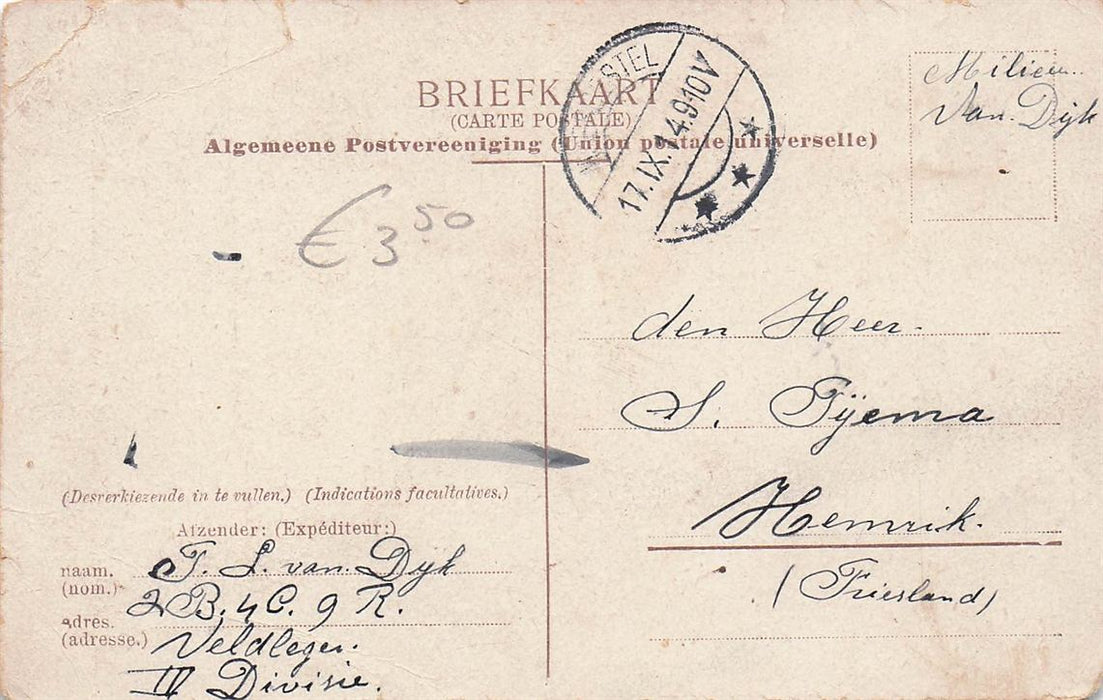 BRIEFKAART
(CARTE POSTALE)
Algemeene Postvereeniging (Union postale universelle)
17.IX.14.9-10V
Milicien
Van. Dijk
€ 3 50
den Heer.
S. Tÿema
Hemrik.
(Friesland)
(Desverkiezende in te vullen.) (Indications facultatives.)
Afzender: (Expéditeur:)
naam. T. L. van. Dyk
(nom.)
2 B. 4 C. 9 R.
adres.
(adresse.) Veldleger.
IV Divisie.